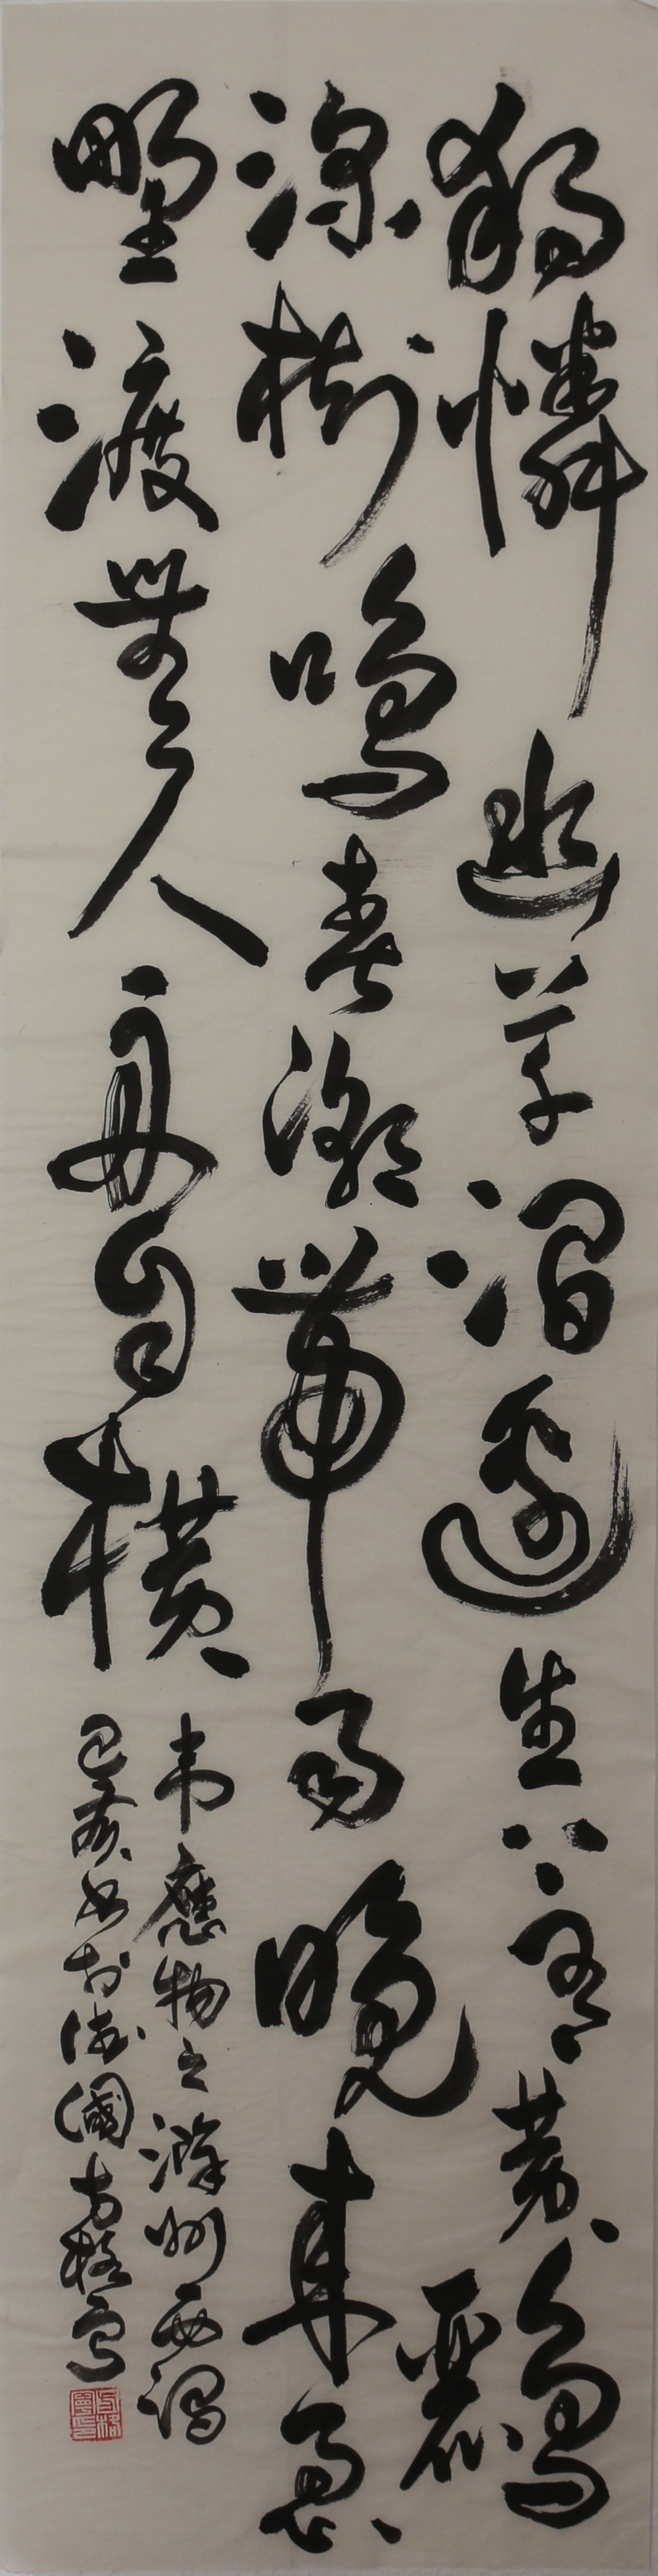 獨憐幽草澗邊生上有黃鸝
深樹鳴春潮帶雨晚來急
野渡無人舟自橫
韋應物之滁州西澗
己亥
國方
寫